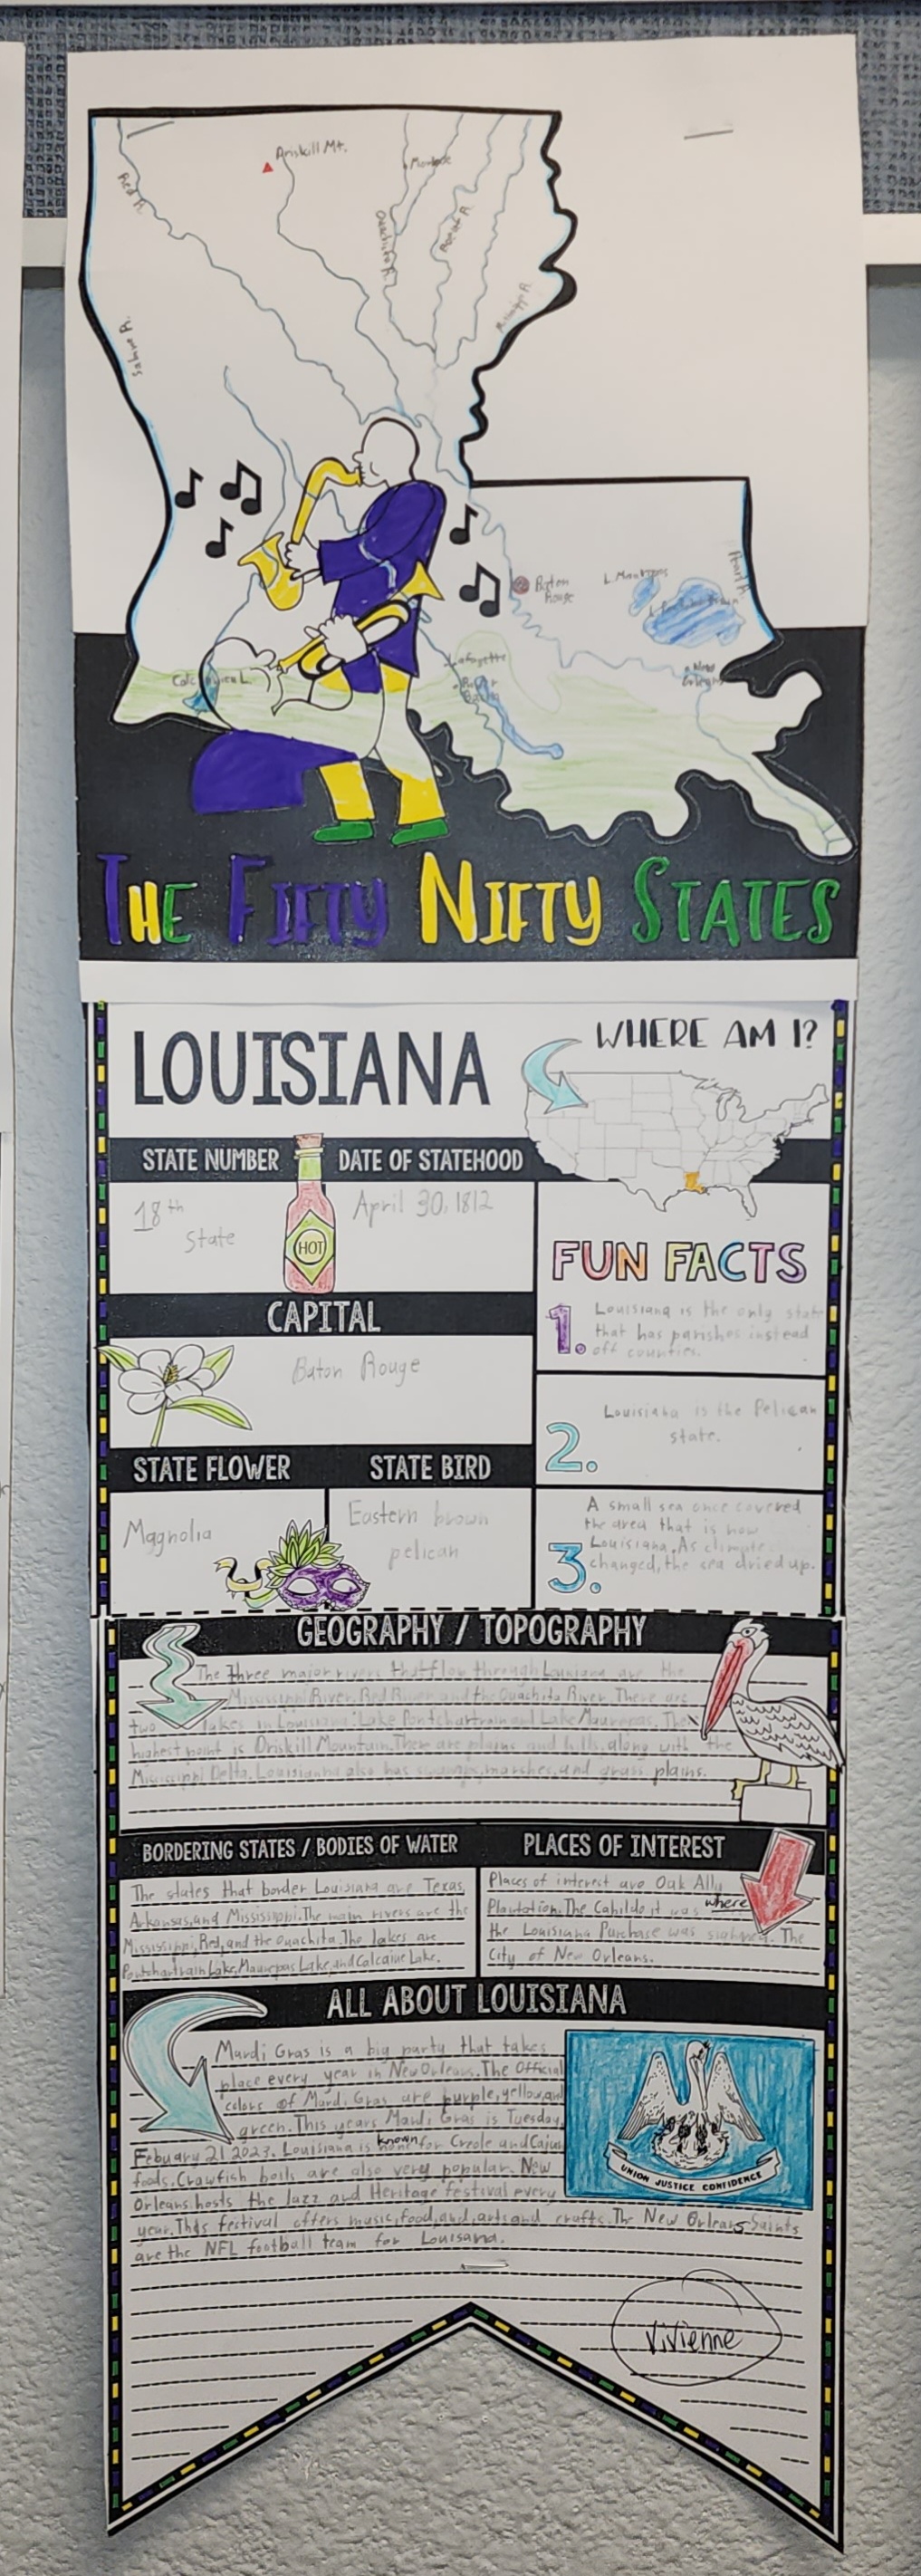 Driskill Mt.
Monroe
Red R.
Ouachita R.
Mississippi R.
Sabine R.
Pearl R.
Baton
Rouge
L. Maurepas
Lafayette
New
Orleans
THE FIFTY NIFTY STATES
LOUISIANA
WHERE AM I?
STATE NUMBER
DATE OF STATEHOOD
18th
State
HOT
April 30, 1812
FUN FACTS
CAPITAL
Baton Rouge
1. Louisiana is the only state
that has parishes instead
off counties.
2. Louisiana is the Pelican
state.
STATE FLOWER
STATE BIRD
Magnolia
Eastern brown
pelican
A small sea once covered
the area that is now
Louisiana. As climate
3. changed, the sea dried up.
GEOGRAPHY / TOPOGRAPHY
The three major rivers that flow through Louisiana are the
Mississippi River, Red River and the Ouachita River. There are
two lakes in Louisiana: Lake Pontchartrain and Lake Maurepas. The
highest point is Driskill Mountain. There are plains and hills, along with the
Mississippi Delta. Louisianna also has swamps, marshes, and grass plains.
BORDERING STATES / BODIES OF WATER
The states that border Louisiana are Texas,
Arkansas, and Mississippi. The main rivers are the
Mississippi, Red, and the Ouachita. The lakes are
Pontchartrain Lake, Maurepas Lake, and Calcaiue Lake.
PLACES OF INTEREST
Places of interest are Oak Ally
Plantation. The Cabildo it was where
the Louisiana Purchase was The
City of New Orleans.
ALL ABOUT LOUISIANA
Mardi Gras is a big party that takes
place every year in New Orleans. The Official
colors of Mardi Gras are purple, yellow, and
green. This years Mardi Gras is Tuesday
Febuary 21 2023. Louisiana is known for Creole and Cajun
foods. Crawfish boils are also very popular. New
Orleans hosts the Jazz and Heritage festival every
year. This festival offers music, food, and, arts and crafts. The New Orleans Saints
are the NFL football team for Louisana.
UNION JUSTICE CONFIDENCE
Vivienne